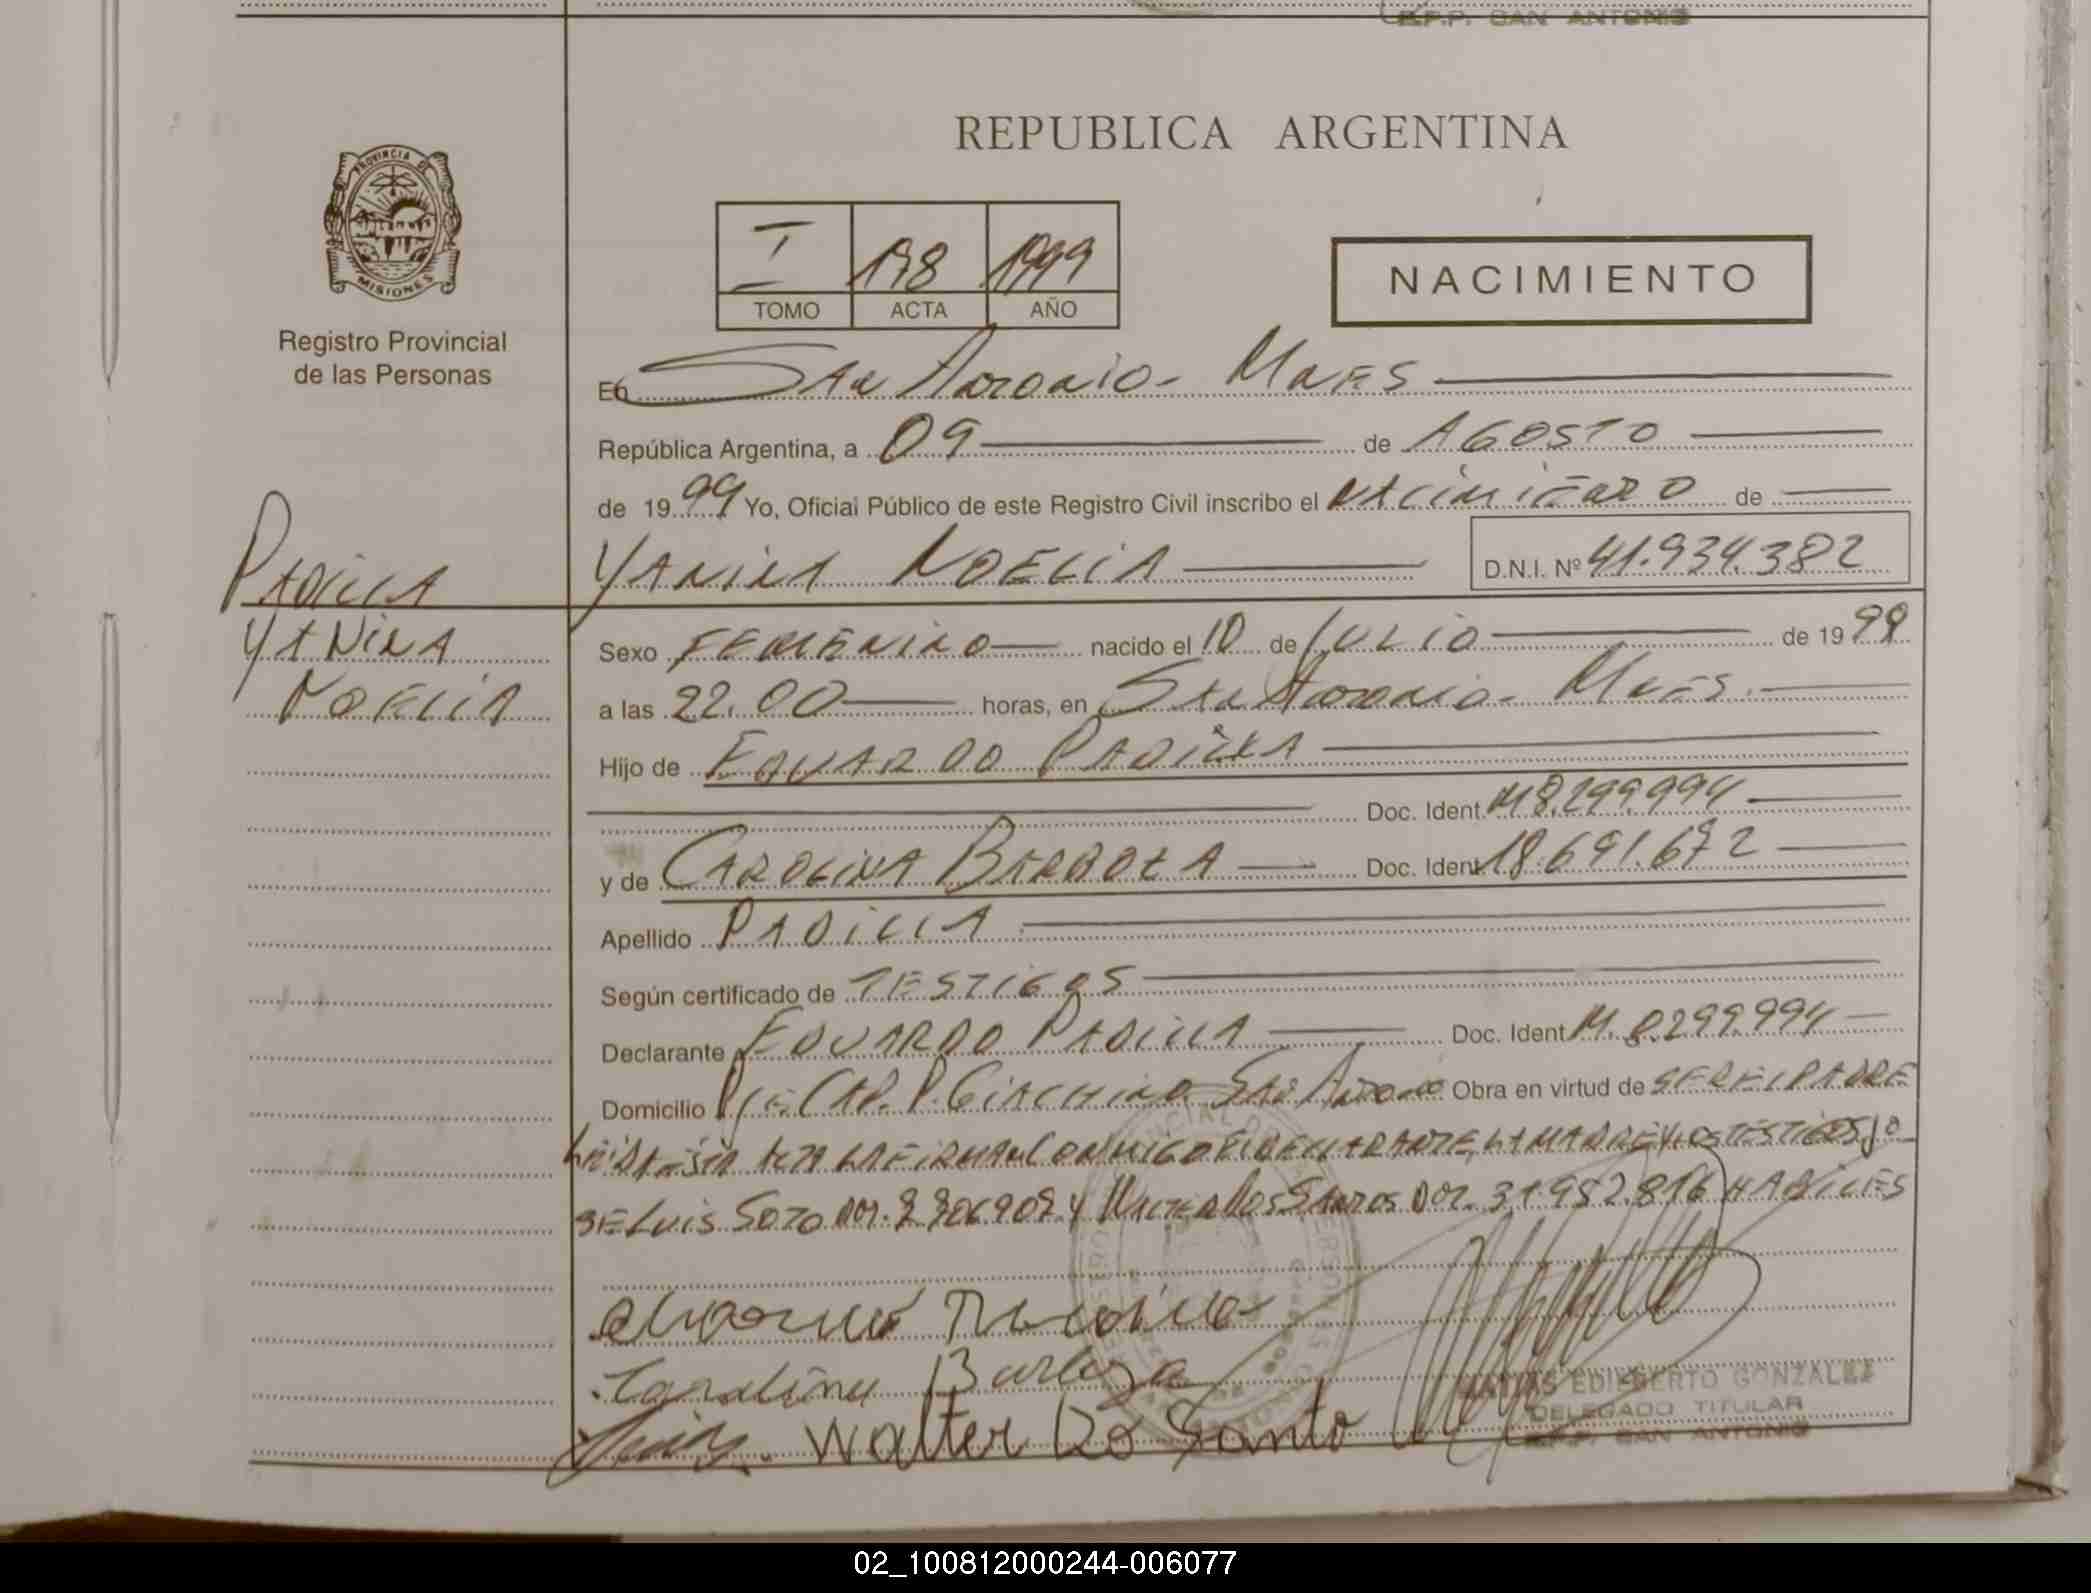 R.P.P. SAN ANTONIO
REPUBLICA ARGENTINA
PROVINCIA DE
MISIONES
Registro Provincial
de las Personas
I 198 1999
TOMO ACTA AÑO
NACIMIENTO
En San Antonio - Mnes
República Argentina, a 09 de AGOSTO
de 1999 Yo, Oficial Público de este Registro Civil inscribo el NACIMIENTO de
YANINA NOELIA D.N.I. Nº 41.934.382
PADILLA
YANINA
NOELIA
Sexo FEMENINO nacido el 10 de JULIO de 1999
a las 22.00 horas, en San Antonio - Mnes.
Hijo de EDUARDO PADILLA
Doc. Ident. M 8.299.994
y de CAROLINA BARBOZA Doc. Ident. 18.691.672
Apellido PADILLA
Según certificado de TESTIGOS
Declarante EDUARDO PADILLA Doc. Ident. M. 8.299.994
Domicilio Pje. CAP. P. GIACHINO San Antonio Obra en virtud de SER EL PADRE
LEIDA ESTA ACTA LA FIRMAN CONMIGO EL DECLARANTE, LA MADRE Y LOS TESTIGOS JO
SE LUIS SOTO DNI. Y WALTER DOS SANTOS DNI. 31.952.816 HABILES
Carolina Barboza
Luis. Walter Do Santo
MATIAS EDILBERTO GONZALEZ
DELEGADO TITULAR
R.P.P. SAN ANTONIO
02_100812000244-006077